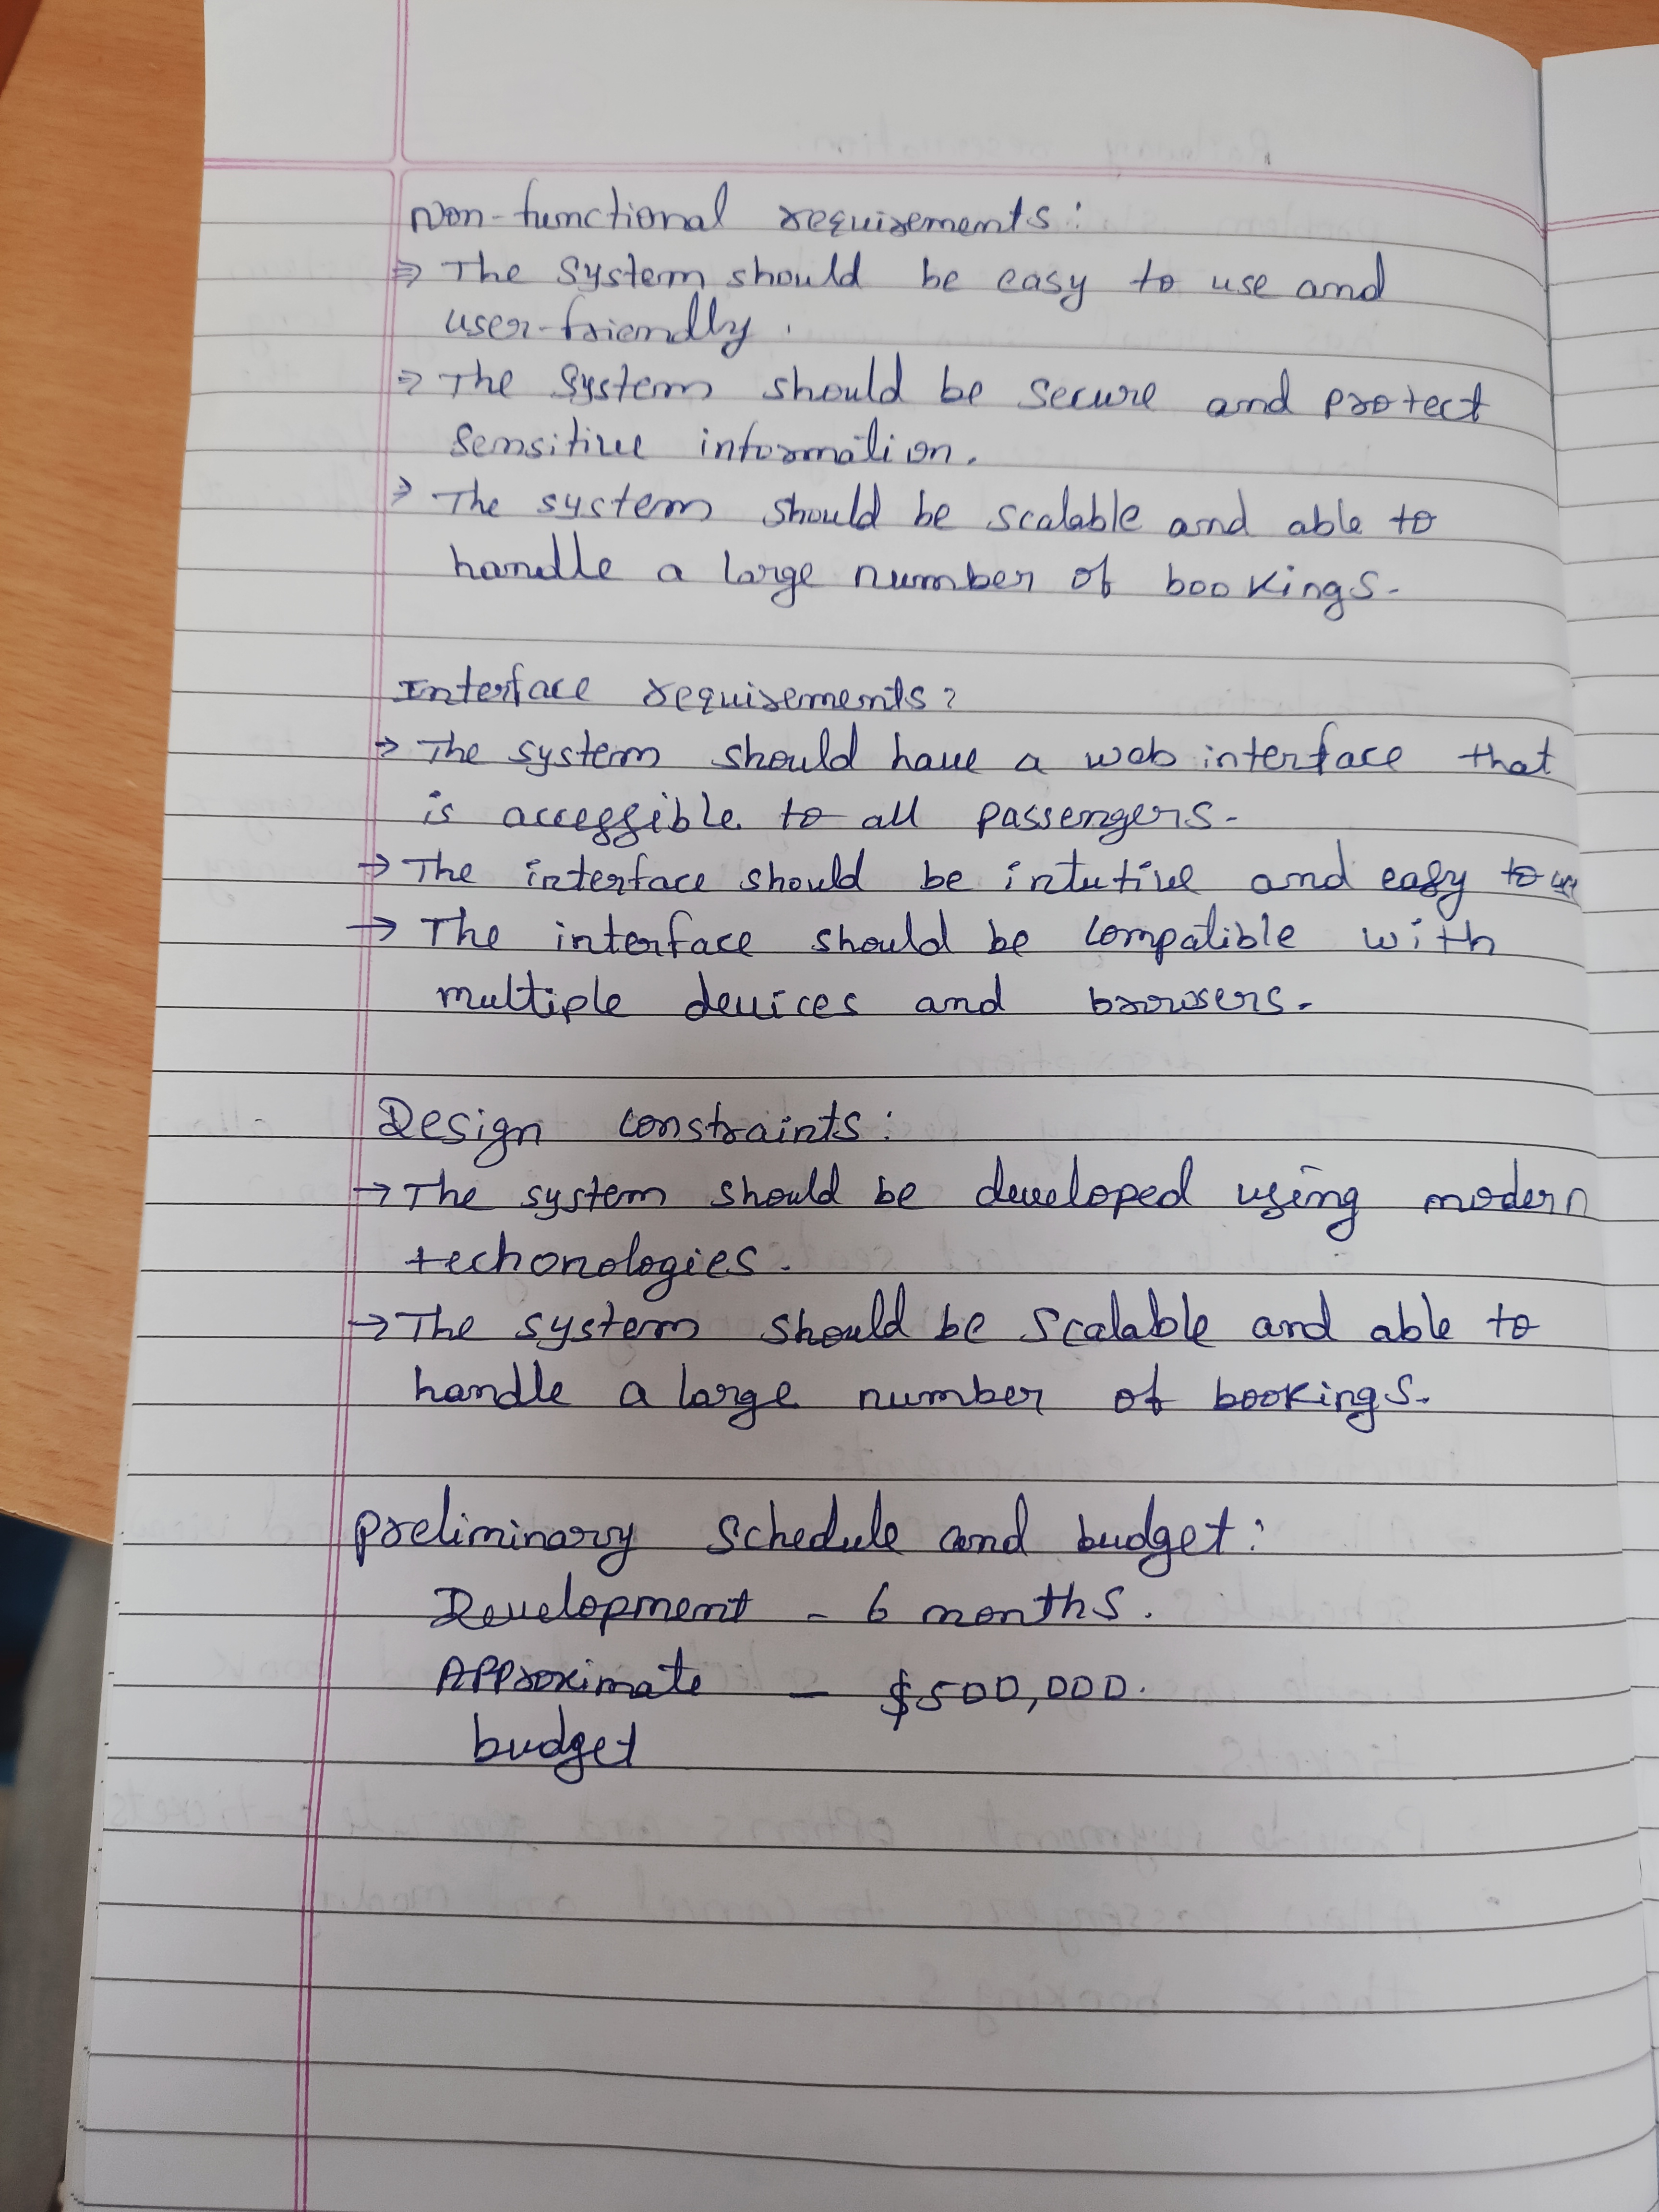 Non-functional requirements:
⇒ The System should be easy to use and
user-friendly.
⇒ The System should be secure and protect
sensitive information.
⇒ The system should be scalable and able to
handle a large number of bookings.
Interface requirements:
→ The system should have a web interface that
is accessible to all passengers.
→ The interface should be intutive and easy to use
→ The interface should be compatible with
multiple devices and browsers.
Design constraints:
→ The system should be developed using modern
techonologies.
→ The system should be scalable and able to
handle a large number of bookings.
Preliminary schedule and budget:
Development - 6 months.
Approximate - $500,000.
budget